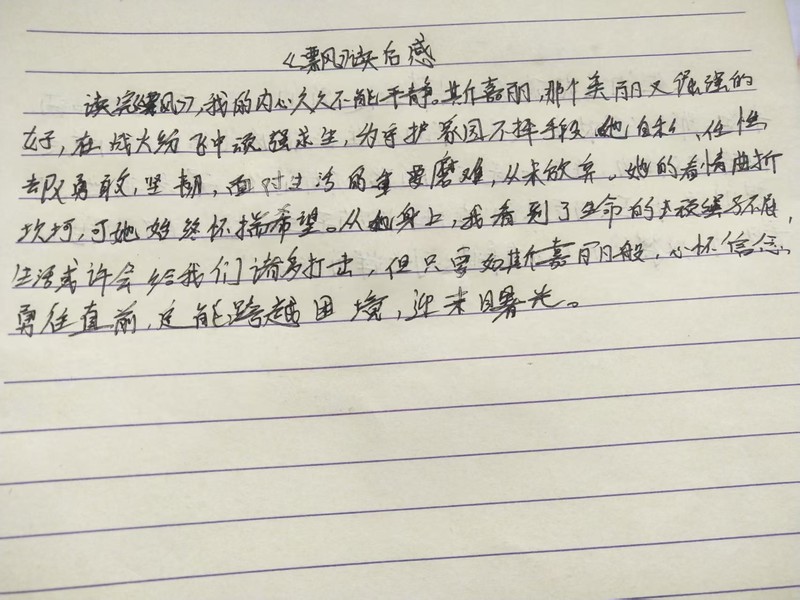 《飘》读后感
读完《飘》,我的内心久久不能平静。斯佳嘉丽,那个美丽又倔强的
女子,在战火纷飞中顽强求生,为守护家园不择手段。她自私、任性
却又勇敢,坚韧,面对生活的重重磨难,从未放弃。她的看情曲折
坎坷,可她始终怀揣希望。从她身上,我看到了生命的顽强与不屈,
生活或许会给我们诸多打击,但只要如斯佳嘉丽般,心怀信念,
勇往直前,定能跨越困境,迎来曙光。